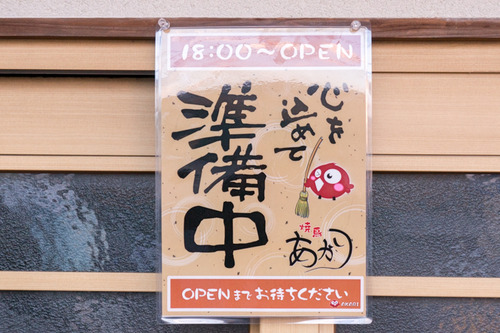 18:00〜OPEN
心を
込めて
準備中
焼鳥
あかり
OPENまでお待ちください